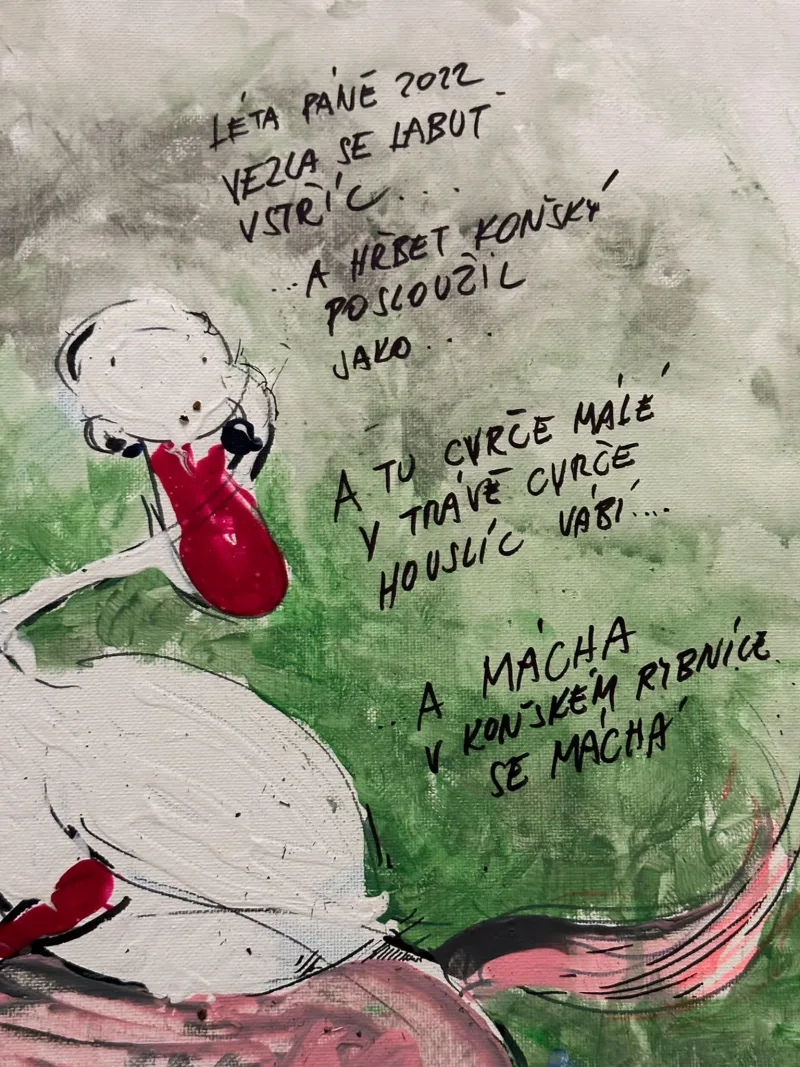 LÉTA PÁNĚ 2022
VEZLA SE LABUŤ
VSTŘÍC....
...A HŘBET KOŇSKÝ
POSLOUŽIL
JAKO....
A TU CVRČE MALÉ
V TRÁVĚ CVRČE
HOUSLÍC VÁBÍ....
...A MÁCHA
V KOŇSKÉM RYBNÍCE
SE MÁCHÁ